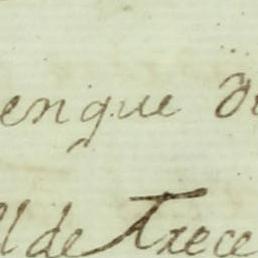 enque
de Trece